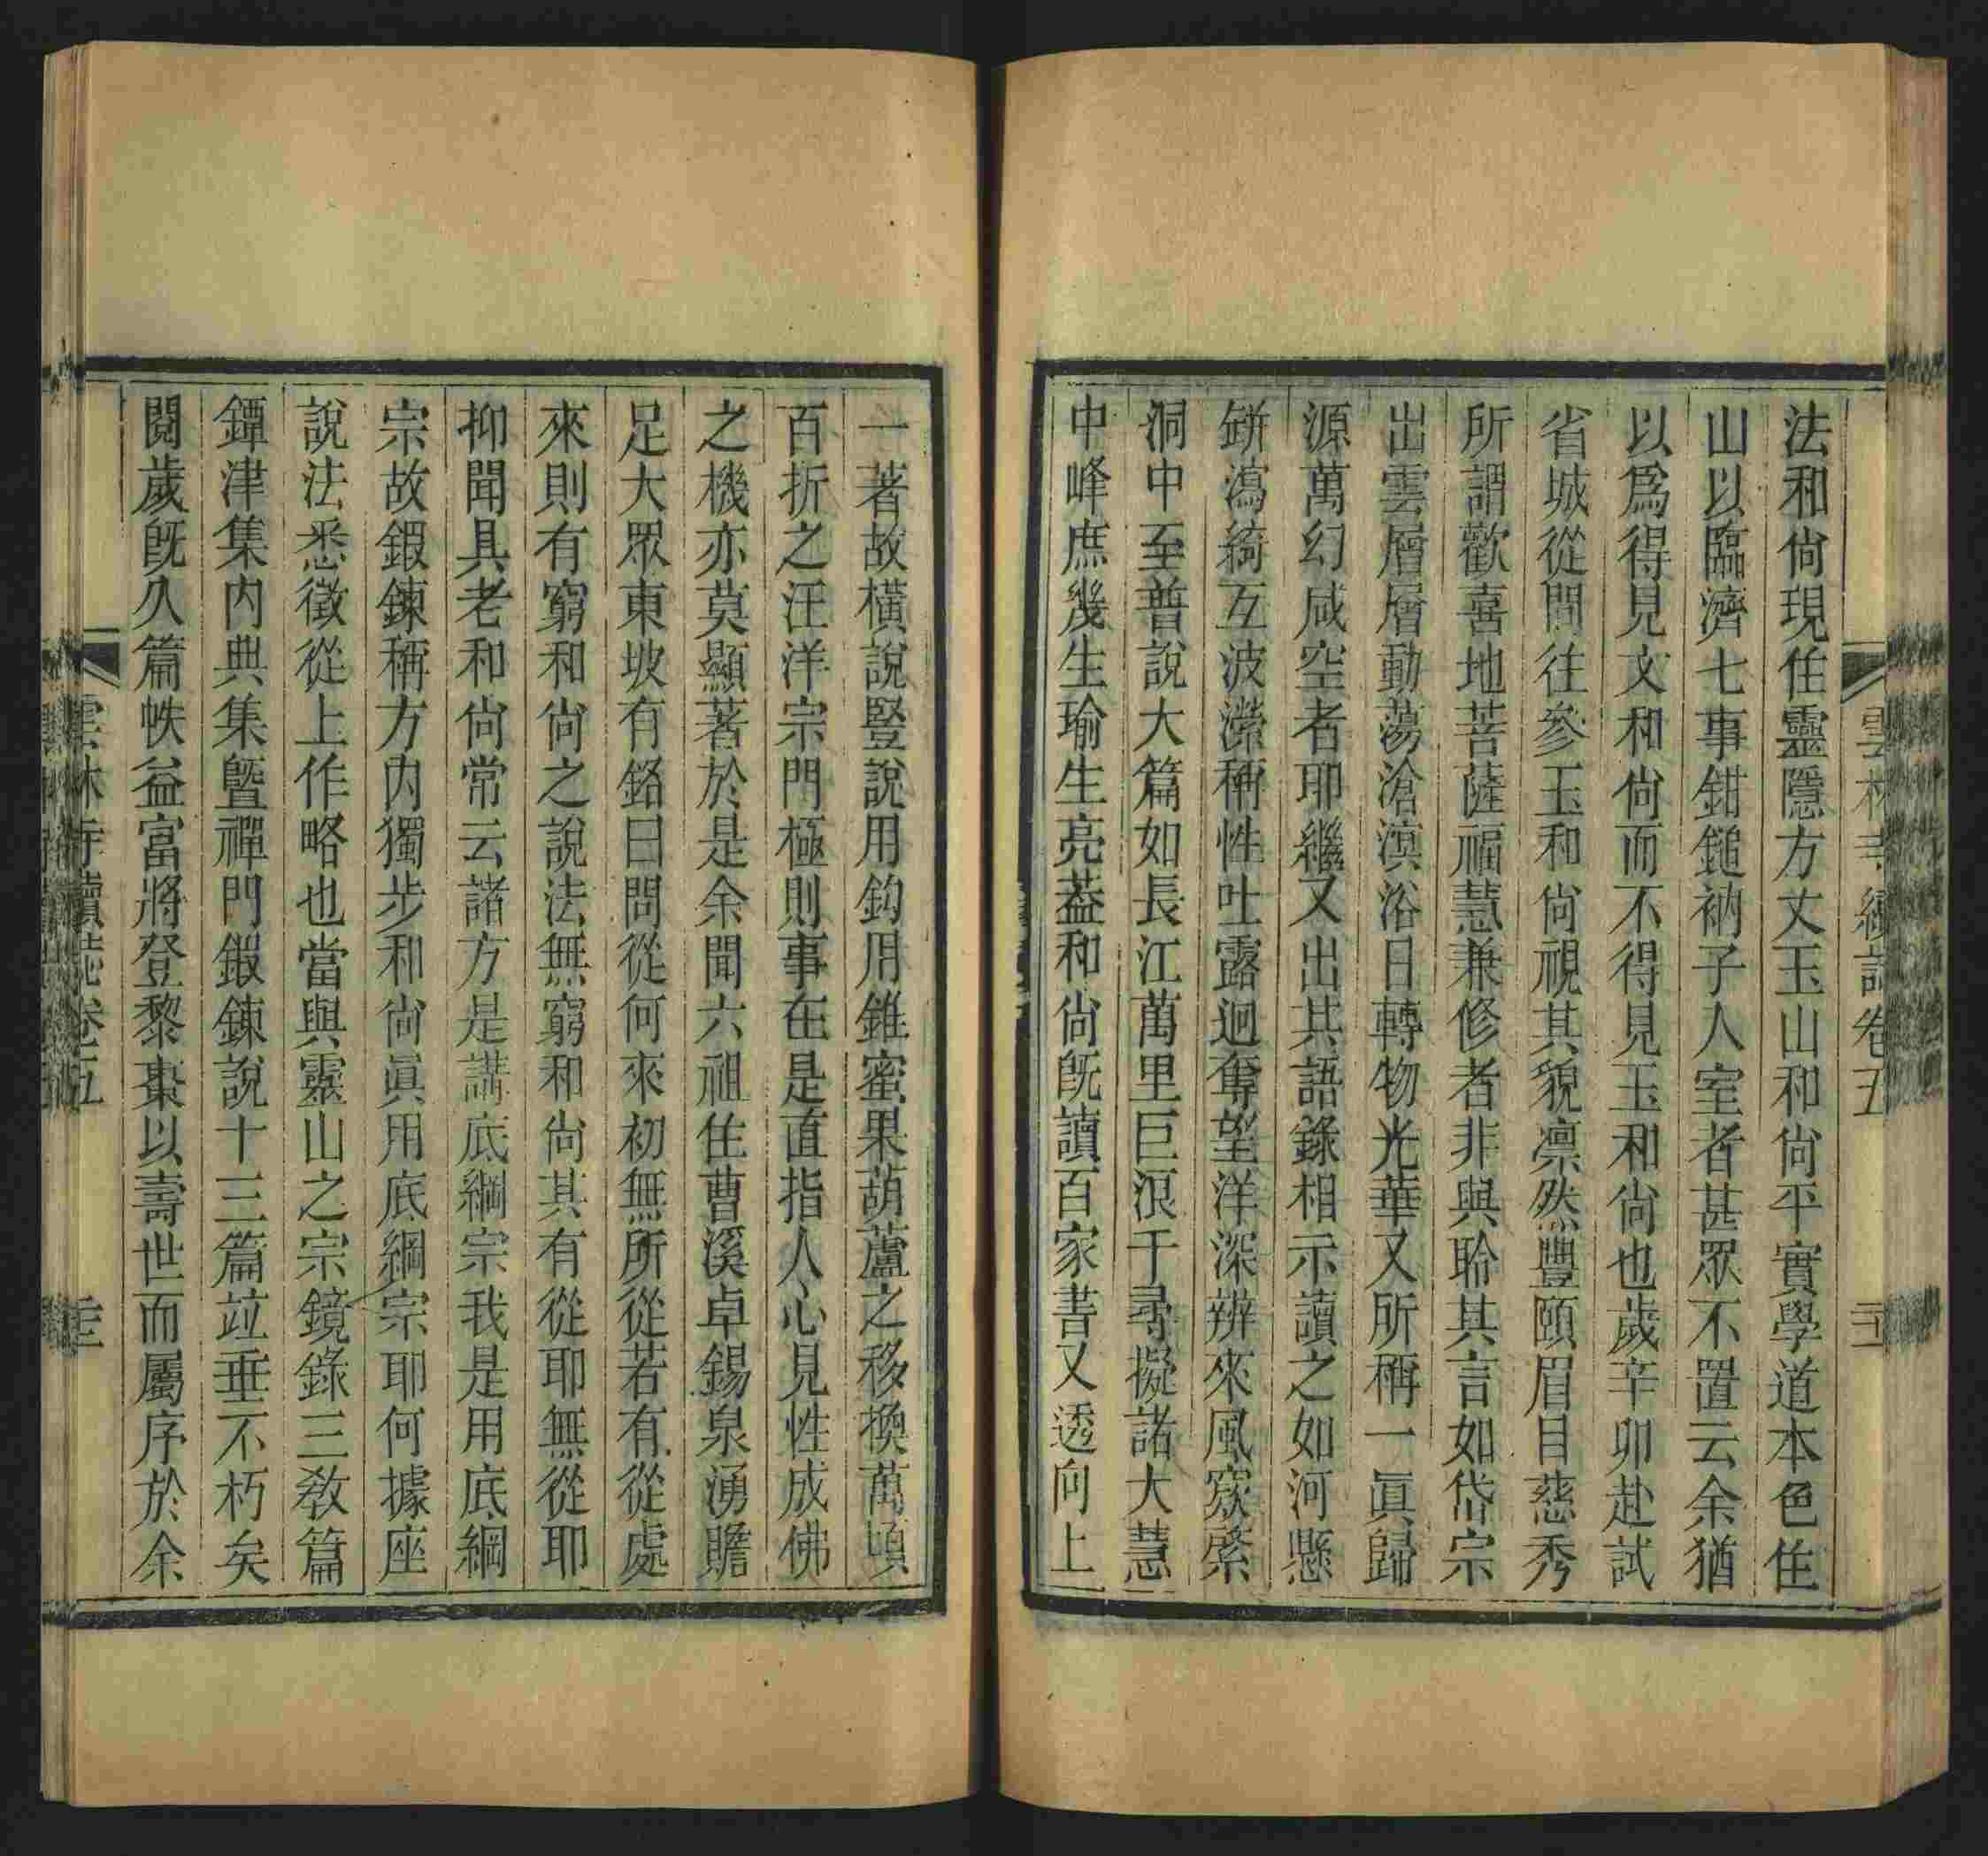 法和尙現住靈隱方丈玉山和尙平實學道本色住
山以臨濟七事鉗鎚衲子入室者甚眾不置云余猶
以爲得見文和尙而不得見玉和尙也歲辛卯赴試
省城從間往參玉和尙視其貌凛然豐頤眉目慈秀
所謂歡喜地菩薩福慧兼修者非與聆其言如岱宗
出雲層層動蕩滄溟浴日轉物光華又所稱一眞歸
源萬幻咸空者耶繼又出其語錄相示讀之如河懸
缾瀉綺互波瀠稱性吐露迥奪望洋深辨來風窾綮
洞中至普說大篇如長江萬里巨浪千尋擬諸大慧
中峰庶幾生瑜生亮葢和尙旣讀百家書又透向上
雲林寺續誌卷五
一著故橫說豎說用鈎用錐蜜果葫蘆之移換萬頃
百折之汪洋宗門極則事在是直指人心見性成佛
之機亦莫顯著於是余聞六祖住曹溪卓錫泉湧贍
足大眾東坡有銘曰問從何來初無所從若有從處
來則有窮和尙之說法無窮和尙其有從耶無從耶
抑聞具老和尙常云諸方是講底綱宗我是用底綱
宗故鍜鍊稱方內獨步和尙眞用底綱宗耶何據座
說法悉徵從上作略也當與靈山之宗鏡錄三敎篇
鐔津集內典集曁禪門鍜鍊說十三篇竝垂不朽矣
閱歲旣久篇帙益富將登黎棗以壽世而屬序於余
雲林寺續誌卷五